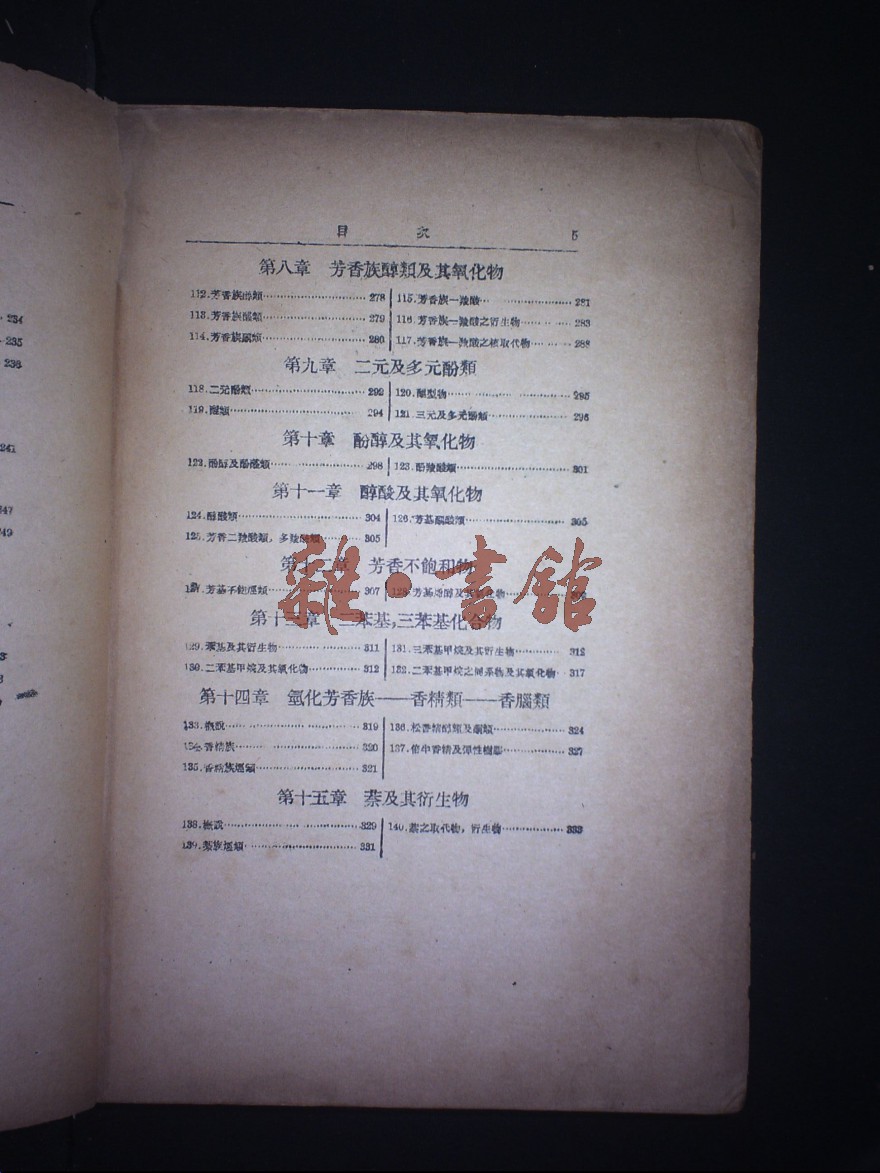 234
235
236
241
247
249
目 次 5
第八章 芳香族醇類及其氧化物
112.芳香族醇類 278
113.芳香族醛類 279
114.芳香族酮類 280
115.芳香族一羧酸 281
116.芳香族一羧酸之衍生物 283
117.芳香族一羧酸之核取代物 288
第九章 二元及多元酚類
118.二元酚類 292
119.醌類 294
120.醌型物 295
121.三元及多元酚類 296
第十章 酚醇及其氧化物
122.酚醇及酚醛類 298
123.酚羧酸類 301
第十一章 醇酸及其氧化物
124.醇酸類 304
125.芳香二羧酸類,多羧酸類 305
126.芳基酮酸類 305
第十二章 芳香不飽和物
127.芳基不飽烴類 307
128.芳基烯醇及其氧化物
第十三章 二苯基,三苯基化合物
129.苯基及其衍生物 311
130.二苯基甲烷及其氧化物 312
131.三苯基甲烷及其衍生物 312
132.二苯基甲烷之同系物及其氧化物 317
第十四章 氫化芳香族——香精類——香腦類
133.概說 319
134.香精族 320
135.香精族烴類 321
136.松香精醇類及酮類 324
137.倍半香精及彈性樹膠 327
第十五章 萘及其衍生物
138.概說 329
139.萘族烴類 331
140.萘之取代物,衍生物 333
雜·書館